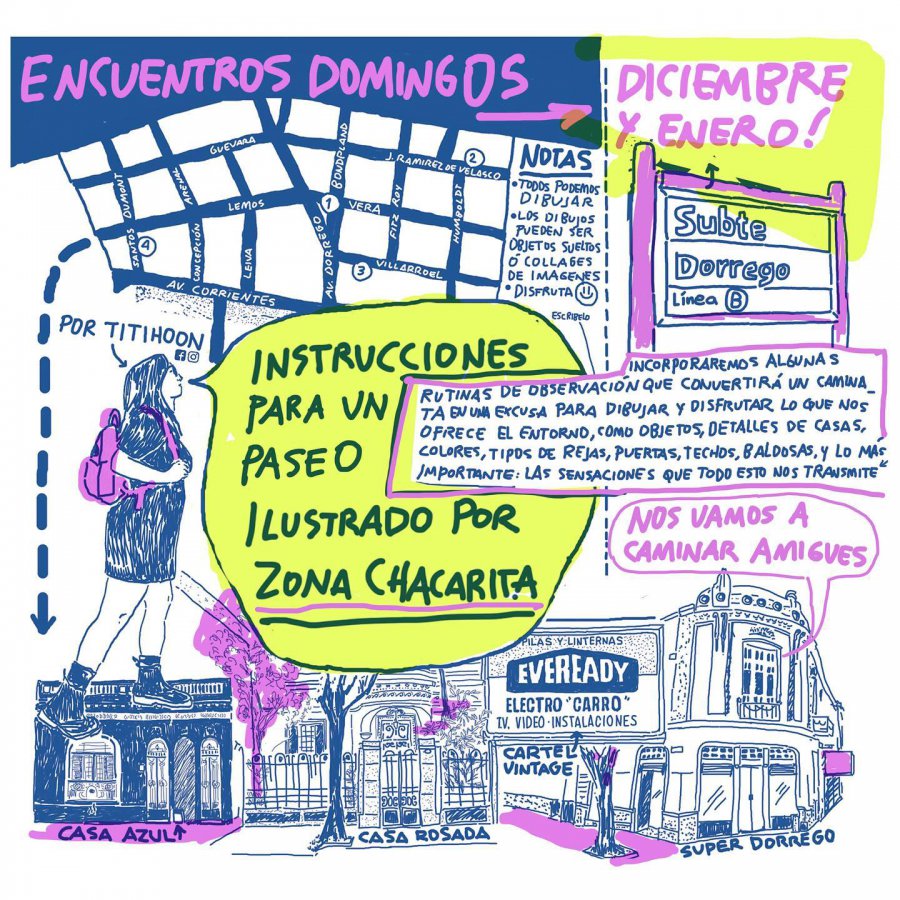 ENCUENTROS DOMINGOS
DICIEMBRE
Y ENERO!
GUEVARA
J. RAMIREZ DE VELASCO
SANTOS DUMONT
ARENAL
CONCEPCIÓN
LEMOS
LEIVA
BONDPLAND
AV. DORREGO
VERA
FITZ ROY
HUMBOLDT
VILLARROEL
AV. CORRIENTES
1
2
3
4
NOTAS
• TODOS PODEMOS
DIBUJAR
• LOS DIBUJOS
PUEDEN SER
OBJETOS SUELTOS
O COLLAGES
DE IMAGENES
• DISFRUTA
ESCRIBELO
Subte
Dorrego
Línea B
POR TITIHOON
INSTRUCCIONES
PARA UN
PASEO
ILUSTRADO POR
ZONA CHACARITA
INCORPORAREMOS ALGUNAS
RUTINAS DE OBSERVACIÓN QUE CONVERTIRÁ UN CAMINA_
TA EN UNA EXCUSA PARA DIBUJAR Y DISFRUTAR LO QUE NOS
OFRECE EL ENTORNO, COMO OBJETOS, DETALLES DE CASAS,
COLORES, TIPOS DE REJAS, PUERTAS, TECHOS, BALDOSAS, Y LO MÁS
IMPORTANTE: LAS SENSACIONES QUE TODO ESTO NOS TRANSMITE"
NOS VAMOS A
CAMINAR AMIGUES
PILAS Y LINTERNAS
EVEREADY
ELECTRO "CARRO"
TV. VIDEO · INSTALACIONES
CARTEL
VINTAGE
CASA AZUL
CASA ROSADA
SUPER DORREGO